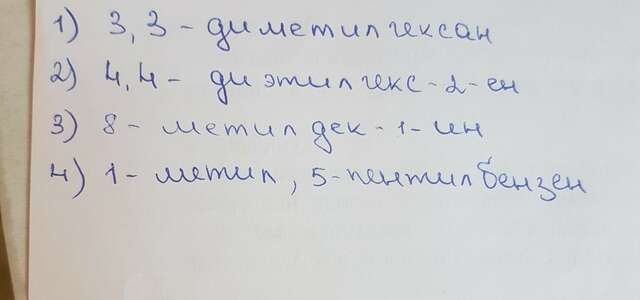 1) 3,3 - диметилгексан
2) 4,4 - диэтилгекс-2-ен
3) 8 - метилдек-1-ин
4) 1 - метил, 5-пентилбензен